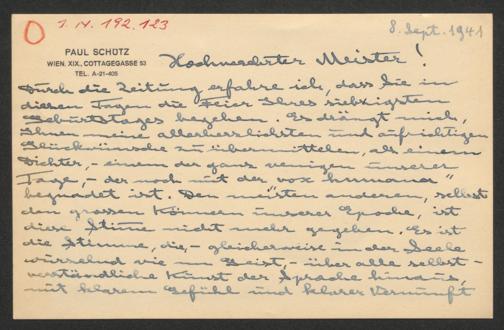 I. N. 192.123
8. Sept. 1941
PAUL SCHÜTZ
WIEN, XIX., COTTAGEGASSE 53
TEL. A-21-405
Hochverehrter Meister!
Durch die Zeitung erfahre ich, dass Sie in
diesen Tagen die Feier Ihres siebzigsten
Geburtstages begehen. Es drängt mich,
Ihnen meine allerherzlichsten und aufrichtigen
Glückwünsche zu übermitteln, als einem
Dichter, - einem der ganz wenigen unserer
Tage, - der noch mit der "vox humana"
begnadet ist. Den meisten anderen, selbst
den grossen Könnern unserer Epoche, ist
diese Stimme nicht mehr gegeben. Es ist
die Stimme, die, - gleicherweise in der Seele
wurzelnd wie im Geist, - über alle selbst-
verständliche Kunst der Sprache hinaus,
mit klarem Gefühl und klarer Vernunft